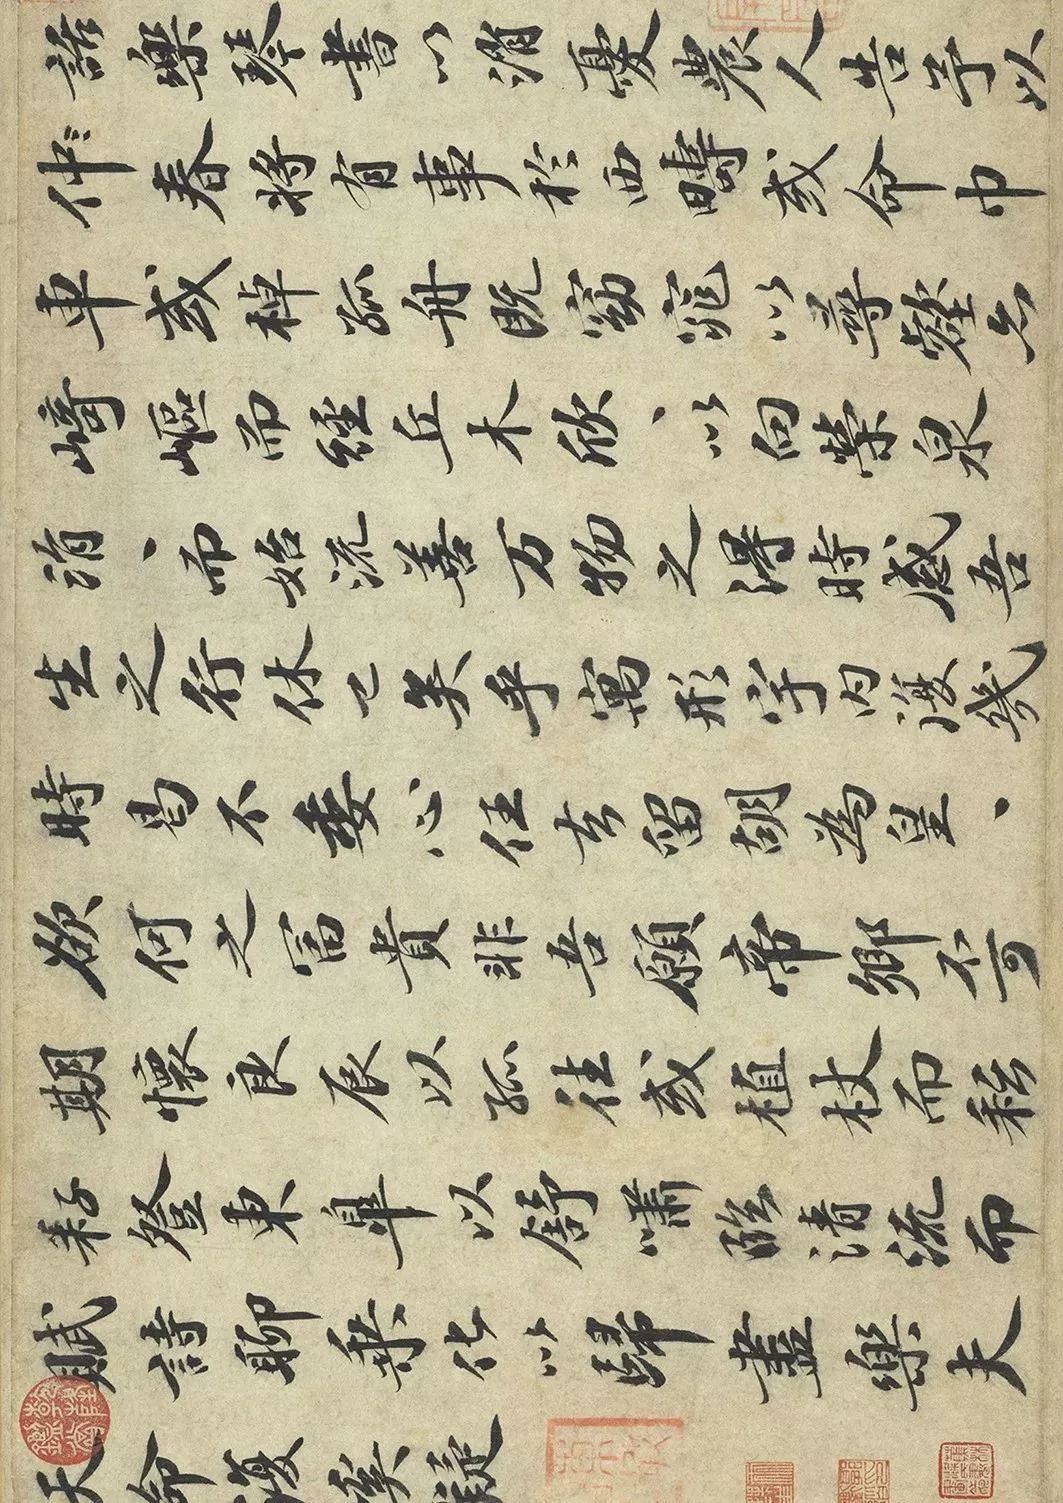 話樂琴書以消憂農人告予以
仲春將有事於西疇或命巾
車或棹孤舟既窈窕以尋壑亦
崎嶇而經丘木欣、以向榮泉
涓、而始流善万物之得時感吾
生之行休已矣乎寓形宇內復幾
時曷不委心任去留胡為皇、
欲何之富貴非吾願帝鄉不可
期懷良辰以孤往或植杖而耘
耔登東皋以舒嘯臨清流而
賦詩聊乘化以歸盡樂夫
天命復奚疑